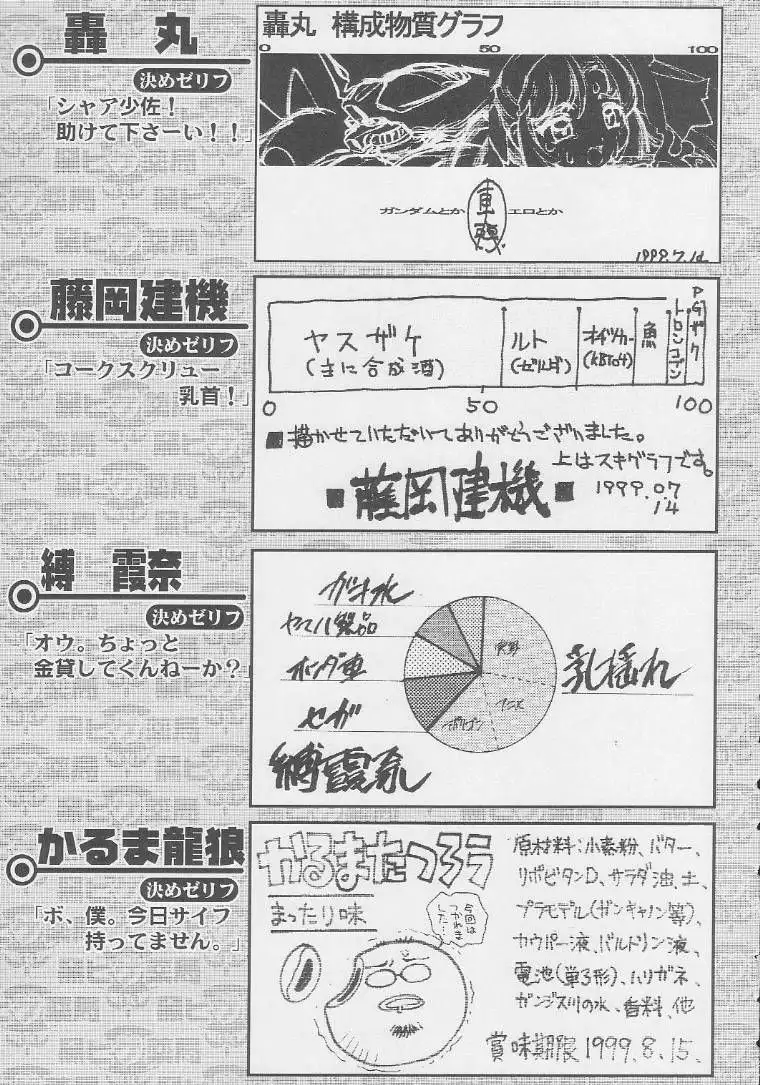 轟 丸
決めゼリフ
「シャア少佐！
助けて下さーい！！」
轟丸 構成物質グラフ
0 50 100
ガンダムとか 車 エロとか
1999.7.14
藤岡建機
決めゼリフ
「コークスクリュー
乳首！」
ヤスザケ
(主に合成酒)
ルト
(ゼルダ)
魚
トロンコブン
PGザク
0 50 100
■描かせていただいてありがとうございました。
上はスキグラフです。
■藤岡建機■ 1999.07
14
縛 霞奈
決めゼリフ
「オウ。ちょっと
金貸してくんねーか？」
ガキ水
ヤマハ製品
ホンダ車
セガ
実写
アニメ
ポリゴン
乳揺れ
縛霞奈
かるま龍狼
決めゼリフ
「ボ、僕。今日サイフ
持ってません。」
かるまたつろう
まったり味
今回は
つかれま
した…
原材料:小麦粉、バター、
リポビタンD、サラダ油、土、
プラモデル(ガンキャノン等)、
カウパー液、バルトリン液、
電池(単3形)、ハリガネ、
ガンジス川の水、香料、他
賞味期限1999.8.15.